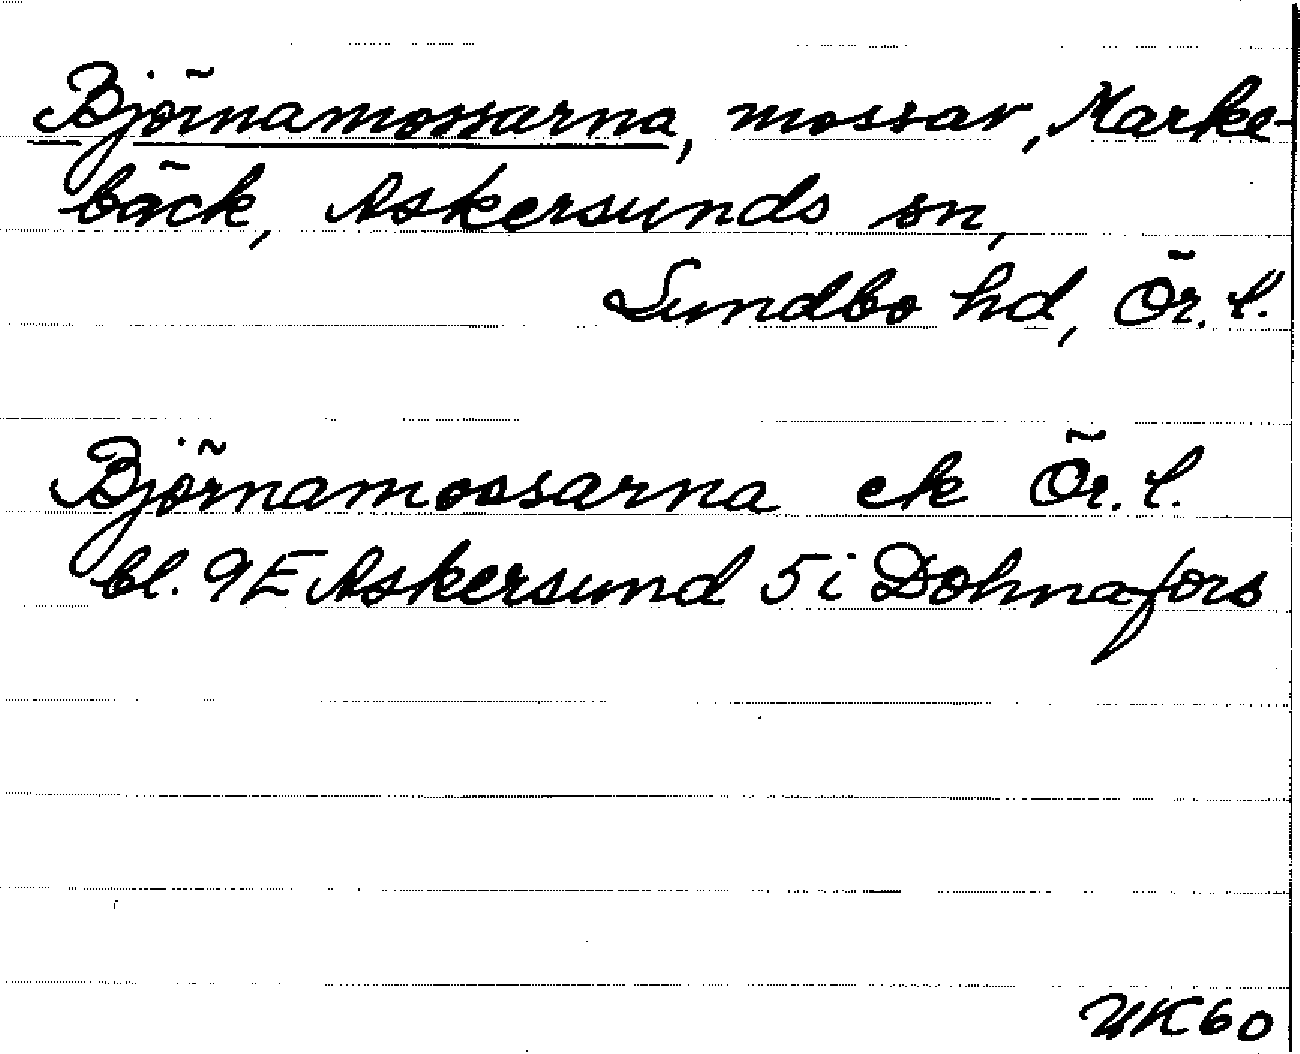 Björnamossarna, mossar, Marke-
bäck, Askersunds sn,
Sundbo hd, Ör. l.
Björnamossarna ek Ör. l.
bl. 9E Askersund 5i Dohnafors
UK60